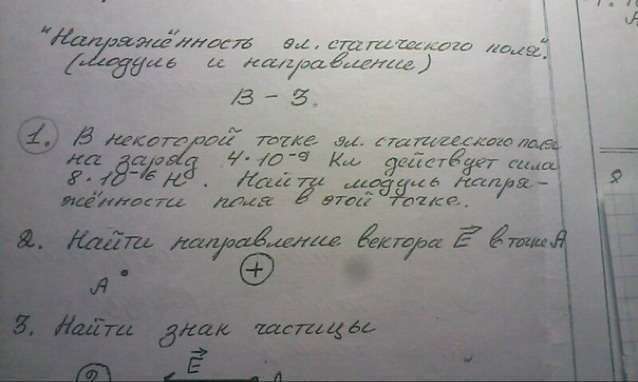 "Напряжённость эл. статического поля".
(модуль и направление)
В - 3.
1. В некоторой точке эл. статического поля
на заряд 4·10⁻⁹ Кл действует сила
8·10⁻⁶ Н. Найти модуль напря-
жённости поля в этой точке.
2. Найти направление вектора E⃗ в точке А
А
+
3. Найти знак частицы
?
E⃗
2